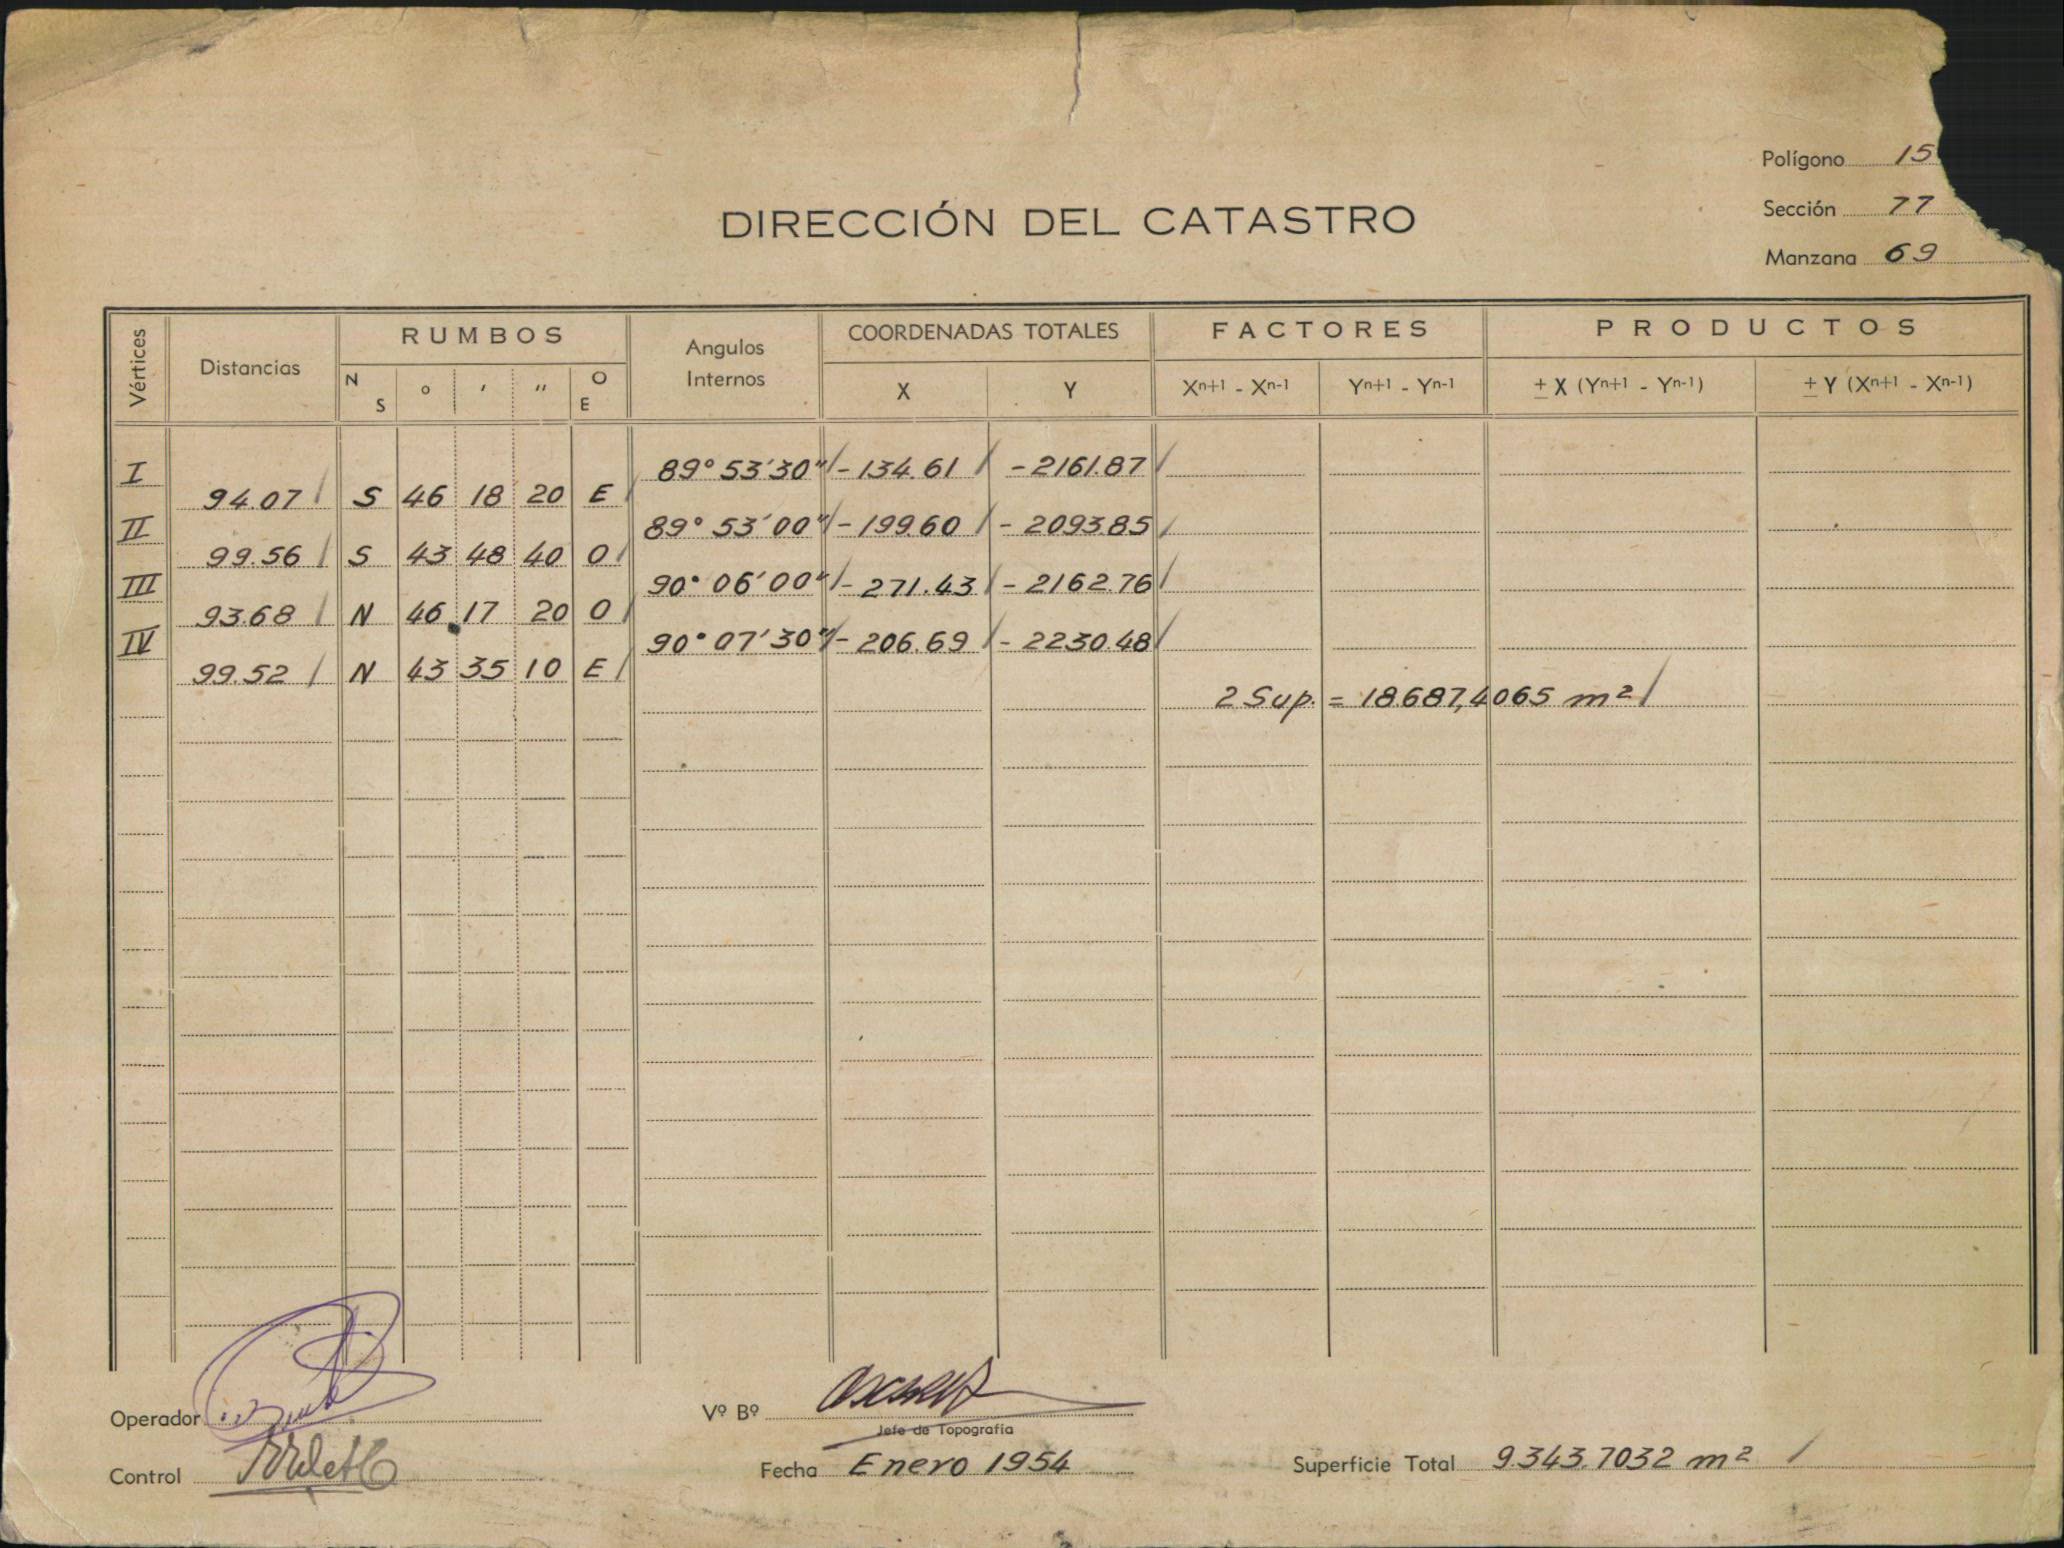 Polígono 15
Sección 77
Manzana 69
DIRECCIÓN DEL CATASTRO
Vértices Distancias RUMBOS Angulos Internos COORDENADAS TOTALES FACTORES PRODUCTOS
N S ° ʹ ʺ O E X Y Xn+1 - Xn-1 Yn+1 - Yn-1 ± X (Yn+1 - Yn-1) ± Y (Xn+1 - Xn-1)
I 89° 53' 30" / - 134.61 / - 2161.87 /
94.07 / S 46 18 20 E /
II 89° 53' 00" / - 199.60 / - 2093.85 /
99.56 / S 43 48 40 O /
III 90° 06' 00" / - 271.43 / - 2162.76 /
93.68 / N 46 17 20 O /
IV 90° 07' 30" / - 206.69 / - 2230.48 /
99.52 / N 43 35 10 E /
2 Sup. = 18.687,4065 m² /
Operador
Vº Bº
Jefe de Topografia
Control
Fecha Enero 1954
Superficie Total 9.343.7032 m² /